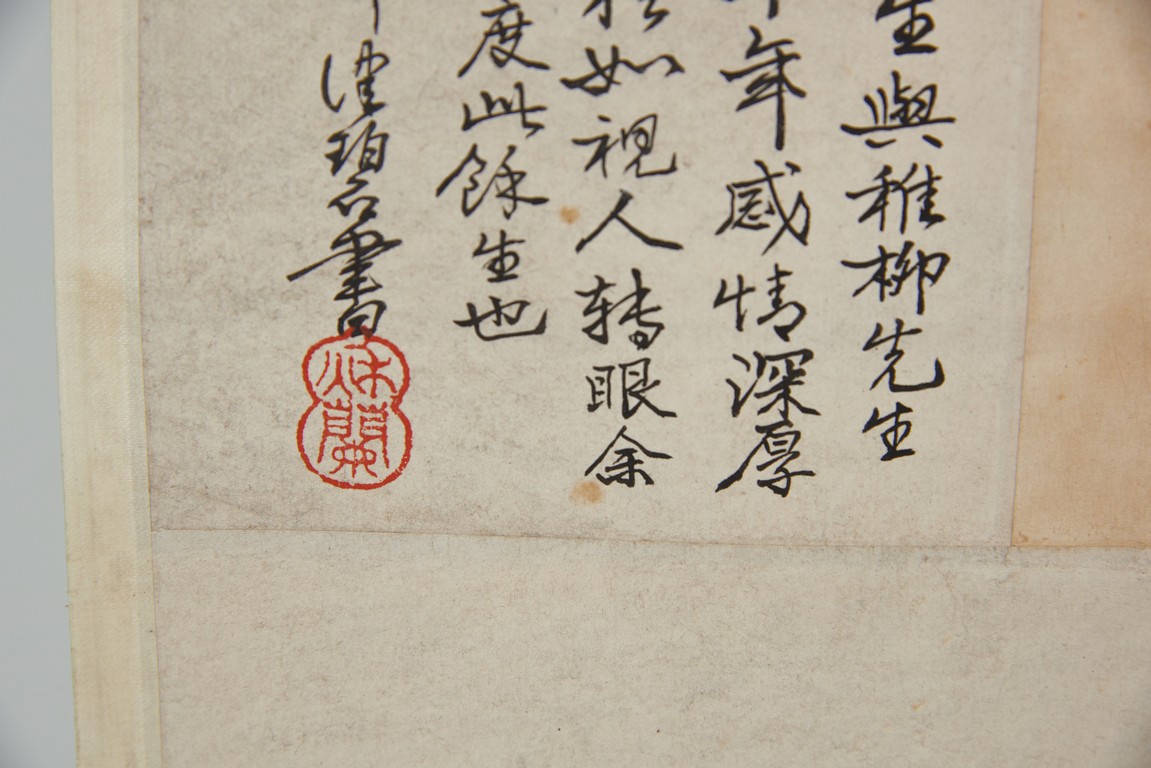 生與稚柳先生
年感情深厚
如視人轉眼余
度此餘生也
珀石書
蘭